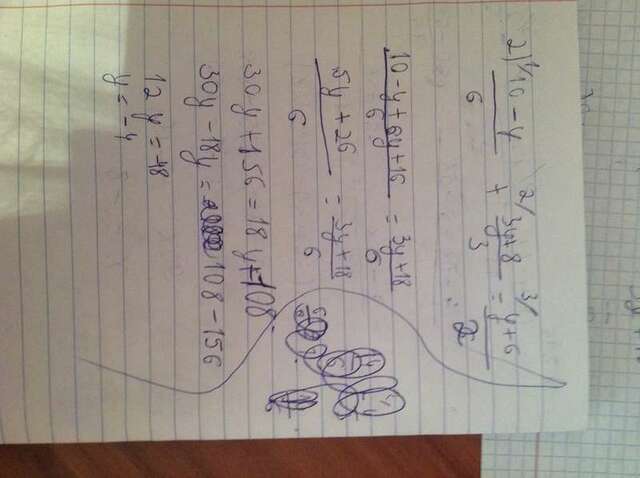 2) 1/ 10 - y / 6 + 2/ 3y + 8 / 3 = 3/ y + 6 / 2
10 - y + 6y + 16 / 6 = 3y + 18 / 6
5y + 26 / 6 = 3y + 18 / 6
30y + 156 = 18y + 108
30y - 18y = 108 - 156
12y = -48
y = -4